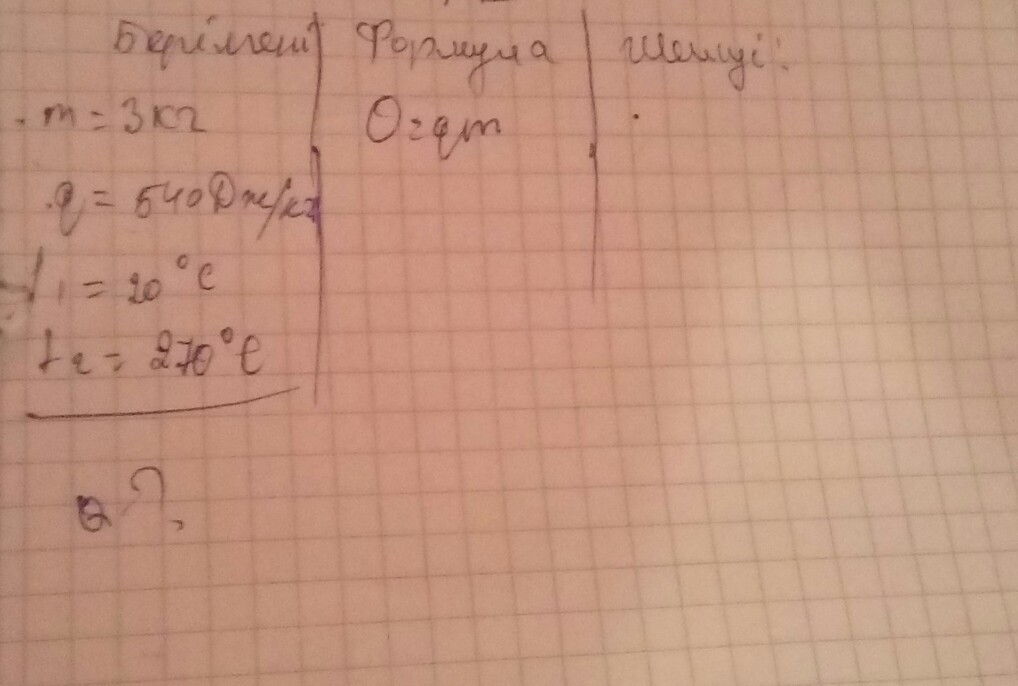 Берілгені Формула Шешуі:
m = 3кг Q=qm
q = 540Дж/кг
t1 = 20°C
t2 = 270°C
Q ?